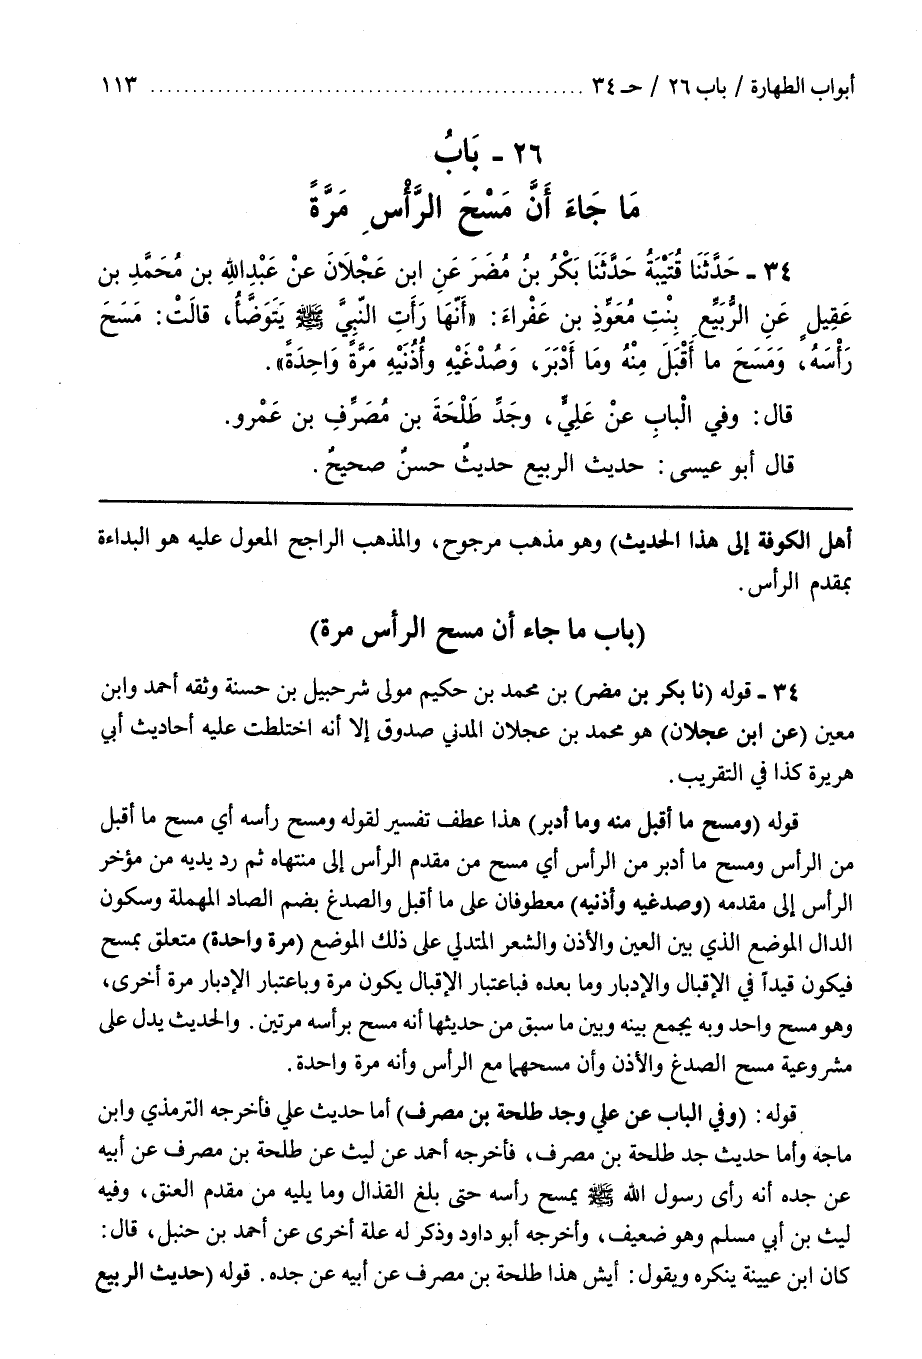 أبواب الطهارة / باب ٢٦ / حـ ٣٤ ................................................ ١١٣
٢٦ - بَابُ
مَا جَاءَ أَنَّ مَسْحَ الرَّأْسِ مَرَّةً
٣٤ - حَدَّثَنَا قُتَيْبَةُ حَدَّثَنَا بَكْرُ بنُ مُضَرَ عَنِ ابن عَجْلَانَ عنْ عَبْدِاللهِ بن مُحَمَّدِ بن
عَقِيلٍ عَنِ الرُّبَيِّعِ بِنْتِ مُعَوِّذِ بن عَفْراءَ: «أَنَّهَا رَأَتِ النَّبِيَّ ﷺ يَتَوَضَّأُ، قالَتْ: مَسَحَ
رَأْسَهُ، وَمَسَحَ ما أَقْبَلَ مِنْهُ ومَا أَدْبَرَ، وَصُدْغَيْهِ وأُذُنَيْهِ مَرَّةً وَاحِدَةً».
قال: وفي الْبابِ عنْ عَلِيٍّ، وجَدِّ طَلْحَةَ بن مُصَرِّفِ بن عَمْرو.
قال أبو عيسى: حديث الربيع حديثٌ حسنٌ صحيحٌ.
أهل الكوفة إلى هذا الحديث) وهو مذهب مرجوح، والمذهب الراجح المعول عليه هو البداءة
بمقدم الرأس.
(باب ما جاء أن مسح الرأس مرة)
٣٤ - قوله (نا بكر بن مضر) بن محمد بن حكيم مولى شرحبيل بن حسنة وثقه أحمد وابن
معين (عن ابن عجلان) هو محمد بن عجلان المدني صدوق إلا أنه اختلطت عليه أحاديث أبي
هريرة كذا في التقريب.
قوله (ومسح ما أقبل منه وما أدبر) هذا عطف تفسير لقوله ومسح رأسه أي مسح ما أقبل
من الرأس ومسح ما أدبر من الرأس أي مسح من مقدم الرأس إلى منتهاه ثم رد يديه من مؤخر
الرأس إلى مقدمه (وصدغيه وأذنيه) معطوفان على ما أقبل والصدغ بضم الصاد المهملة وسكون
الدال الموضع الذي بين العين والأذن والشعر المتدلي على ذلك الموضع (مرة واحدة) متعلق بمسح
فيكون قيداً في الإقبال والإدبار وما بعده فباعتبار الإقبال يكون مرة وباعتبار الإدبار مرة أخرى،
وهو مسح واحد وبه يجمع بينه وبين ما سبق من حديثها أنه مسح برأسه مرتين. والحديث يدل على
مشروعية مسح الصدغ والأذن وأن مسحهما مع الرأس وأنه مرة واحدة.
قوله: (وفي الباب عن علي وجد طلحة بن مصرف) أما حديث علي فأخرجه الترمذي وابن
ماجه وأما حديث جد طلحة بن مصرف، فأخرجه أحمد عن ليث عن طلحة بن مصرف عن أبيه
عن جده أنه رأى رسول الله ﷺ يمسح رأسه حتى بلغ القذال وما يليه من مقدم العنق، وفيه
ليث بن أبي مسلم وهو ضعيف، وأخرجه أبو داود وذكر له علة أخرى عن أحمد بن حنبل، قال:
كان ابن عيينة ينكره ويقول: أيش هذا طلحة بن مصرف عن أبيه عن جده. قوله (حديث الربيع